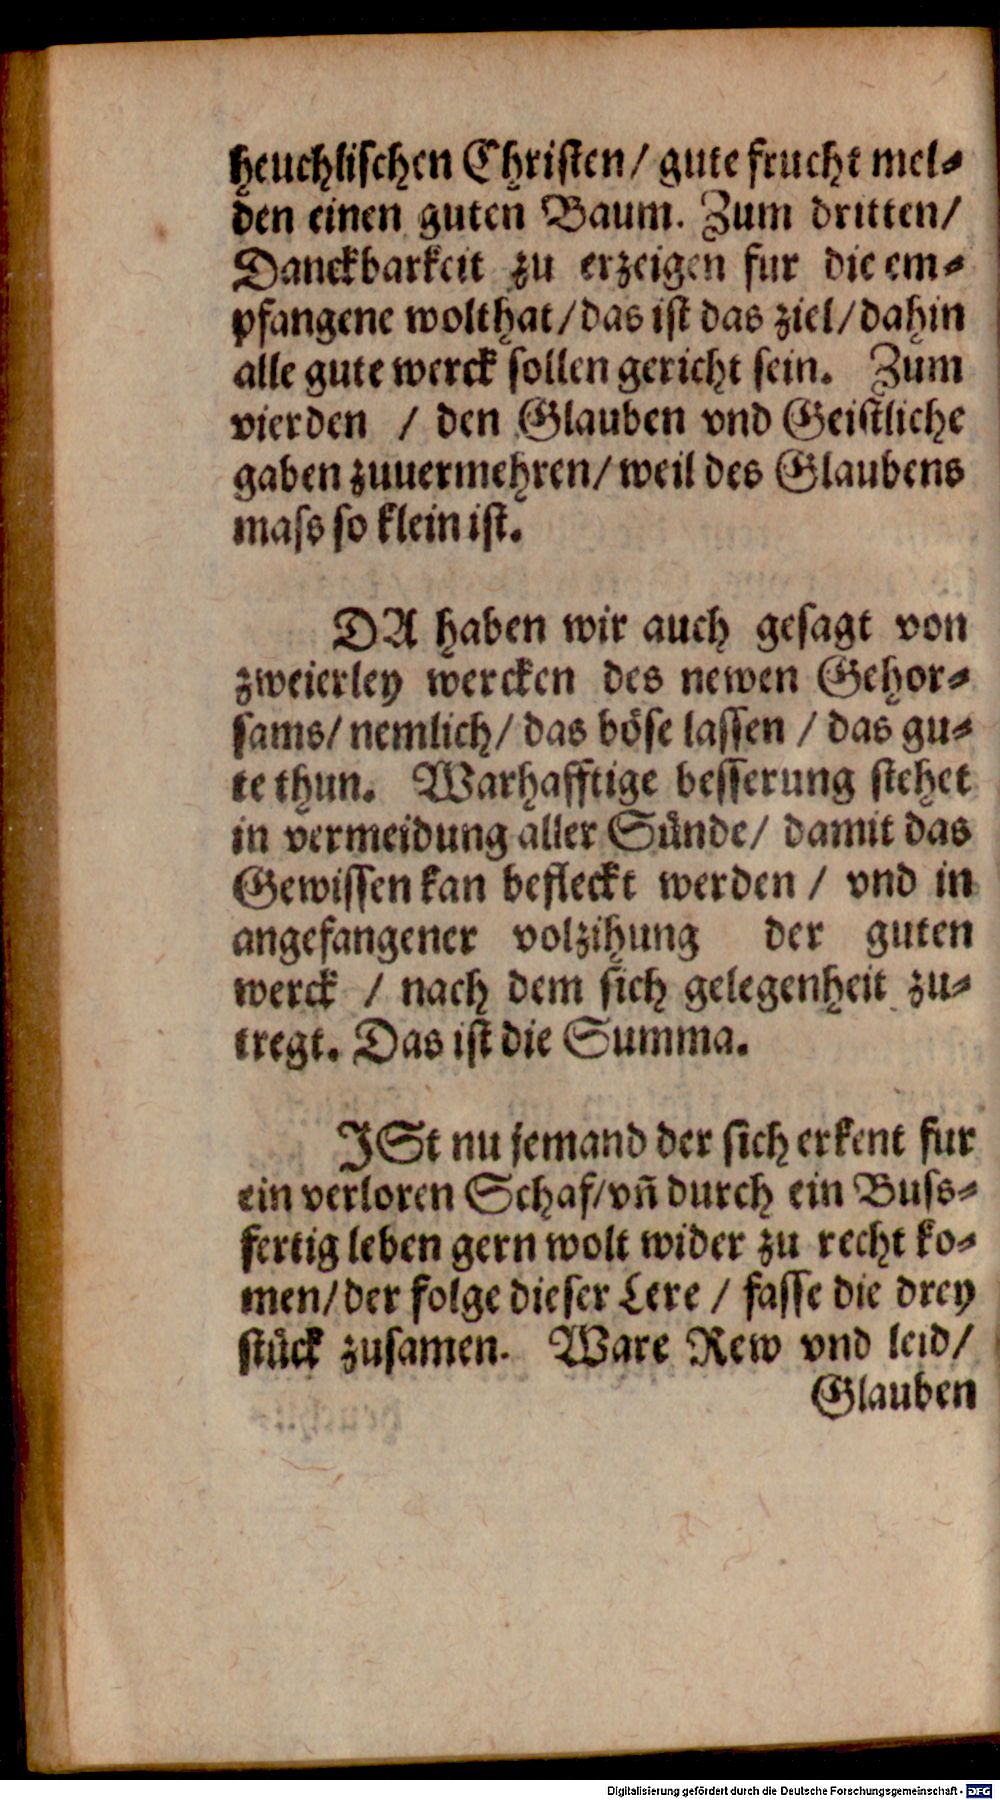 heuchlischen Christen/ gute frucht mel⸗
den einen guten Baum. Zum dritten/
Danckbarkeit zu erzeigen fur die em⸗
pfangene wolthat/das ist das ziel/dahin
alle gute werck sollen gericht sein. Zum
vierden / den Glauben vnd Geistliche
gaben zuuermehren/ weil des Glaubens
mass so klein ist.
DA haben wir auch gesagt von
zweierley wercken des newen Gehor⸗
sams/ nemlich/ das böse lassen / das gu⸗
te thun. Warhafftige besserung stehet
in vermeidung aller Sünde/ damit das
Gewissen kan befleckt werden / vnd in
angefangener volzihung der guten
werck / nach dem sich gelegenheit zu⸗
tregt. Das ist die Summa.
JSt nu jemand der sich erkent fur
ein verloren Schaf/vñ durch ein Buss⸗
fertig leben gern wolt wider zu recht ko⸗
men/der folge dieser Lere / fasse die drey
stück zusamen. Ware Rew vnd leid/
Glauben
Digitalisierung gefördert durch die Deutsche Forschungsgemeinschaft - DFG